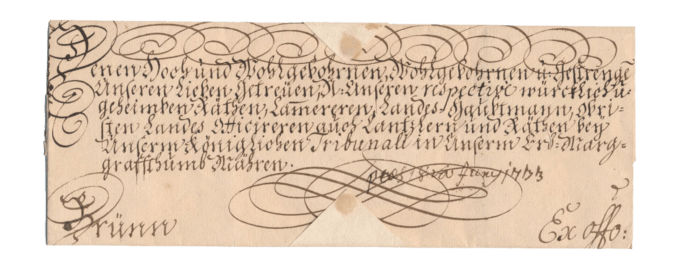 Denen Hoch und Wohlgebohrnen, Wohlgebohrnen u: Gestrenge
Unseren Lieben Getreuen, N: Unseren respectivè würcklich
geheimben Räthen, Cammereren, Landes-Haubtmann, Obri-
sten Landes Officireren auch Cantzlern und Räthen bey
Unserm Königlichen Tribunall in Unserm Erb-Marg-
graffthumb Mähren.
Juny 1733
Brünn
Ex offo: